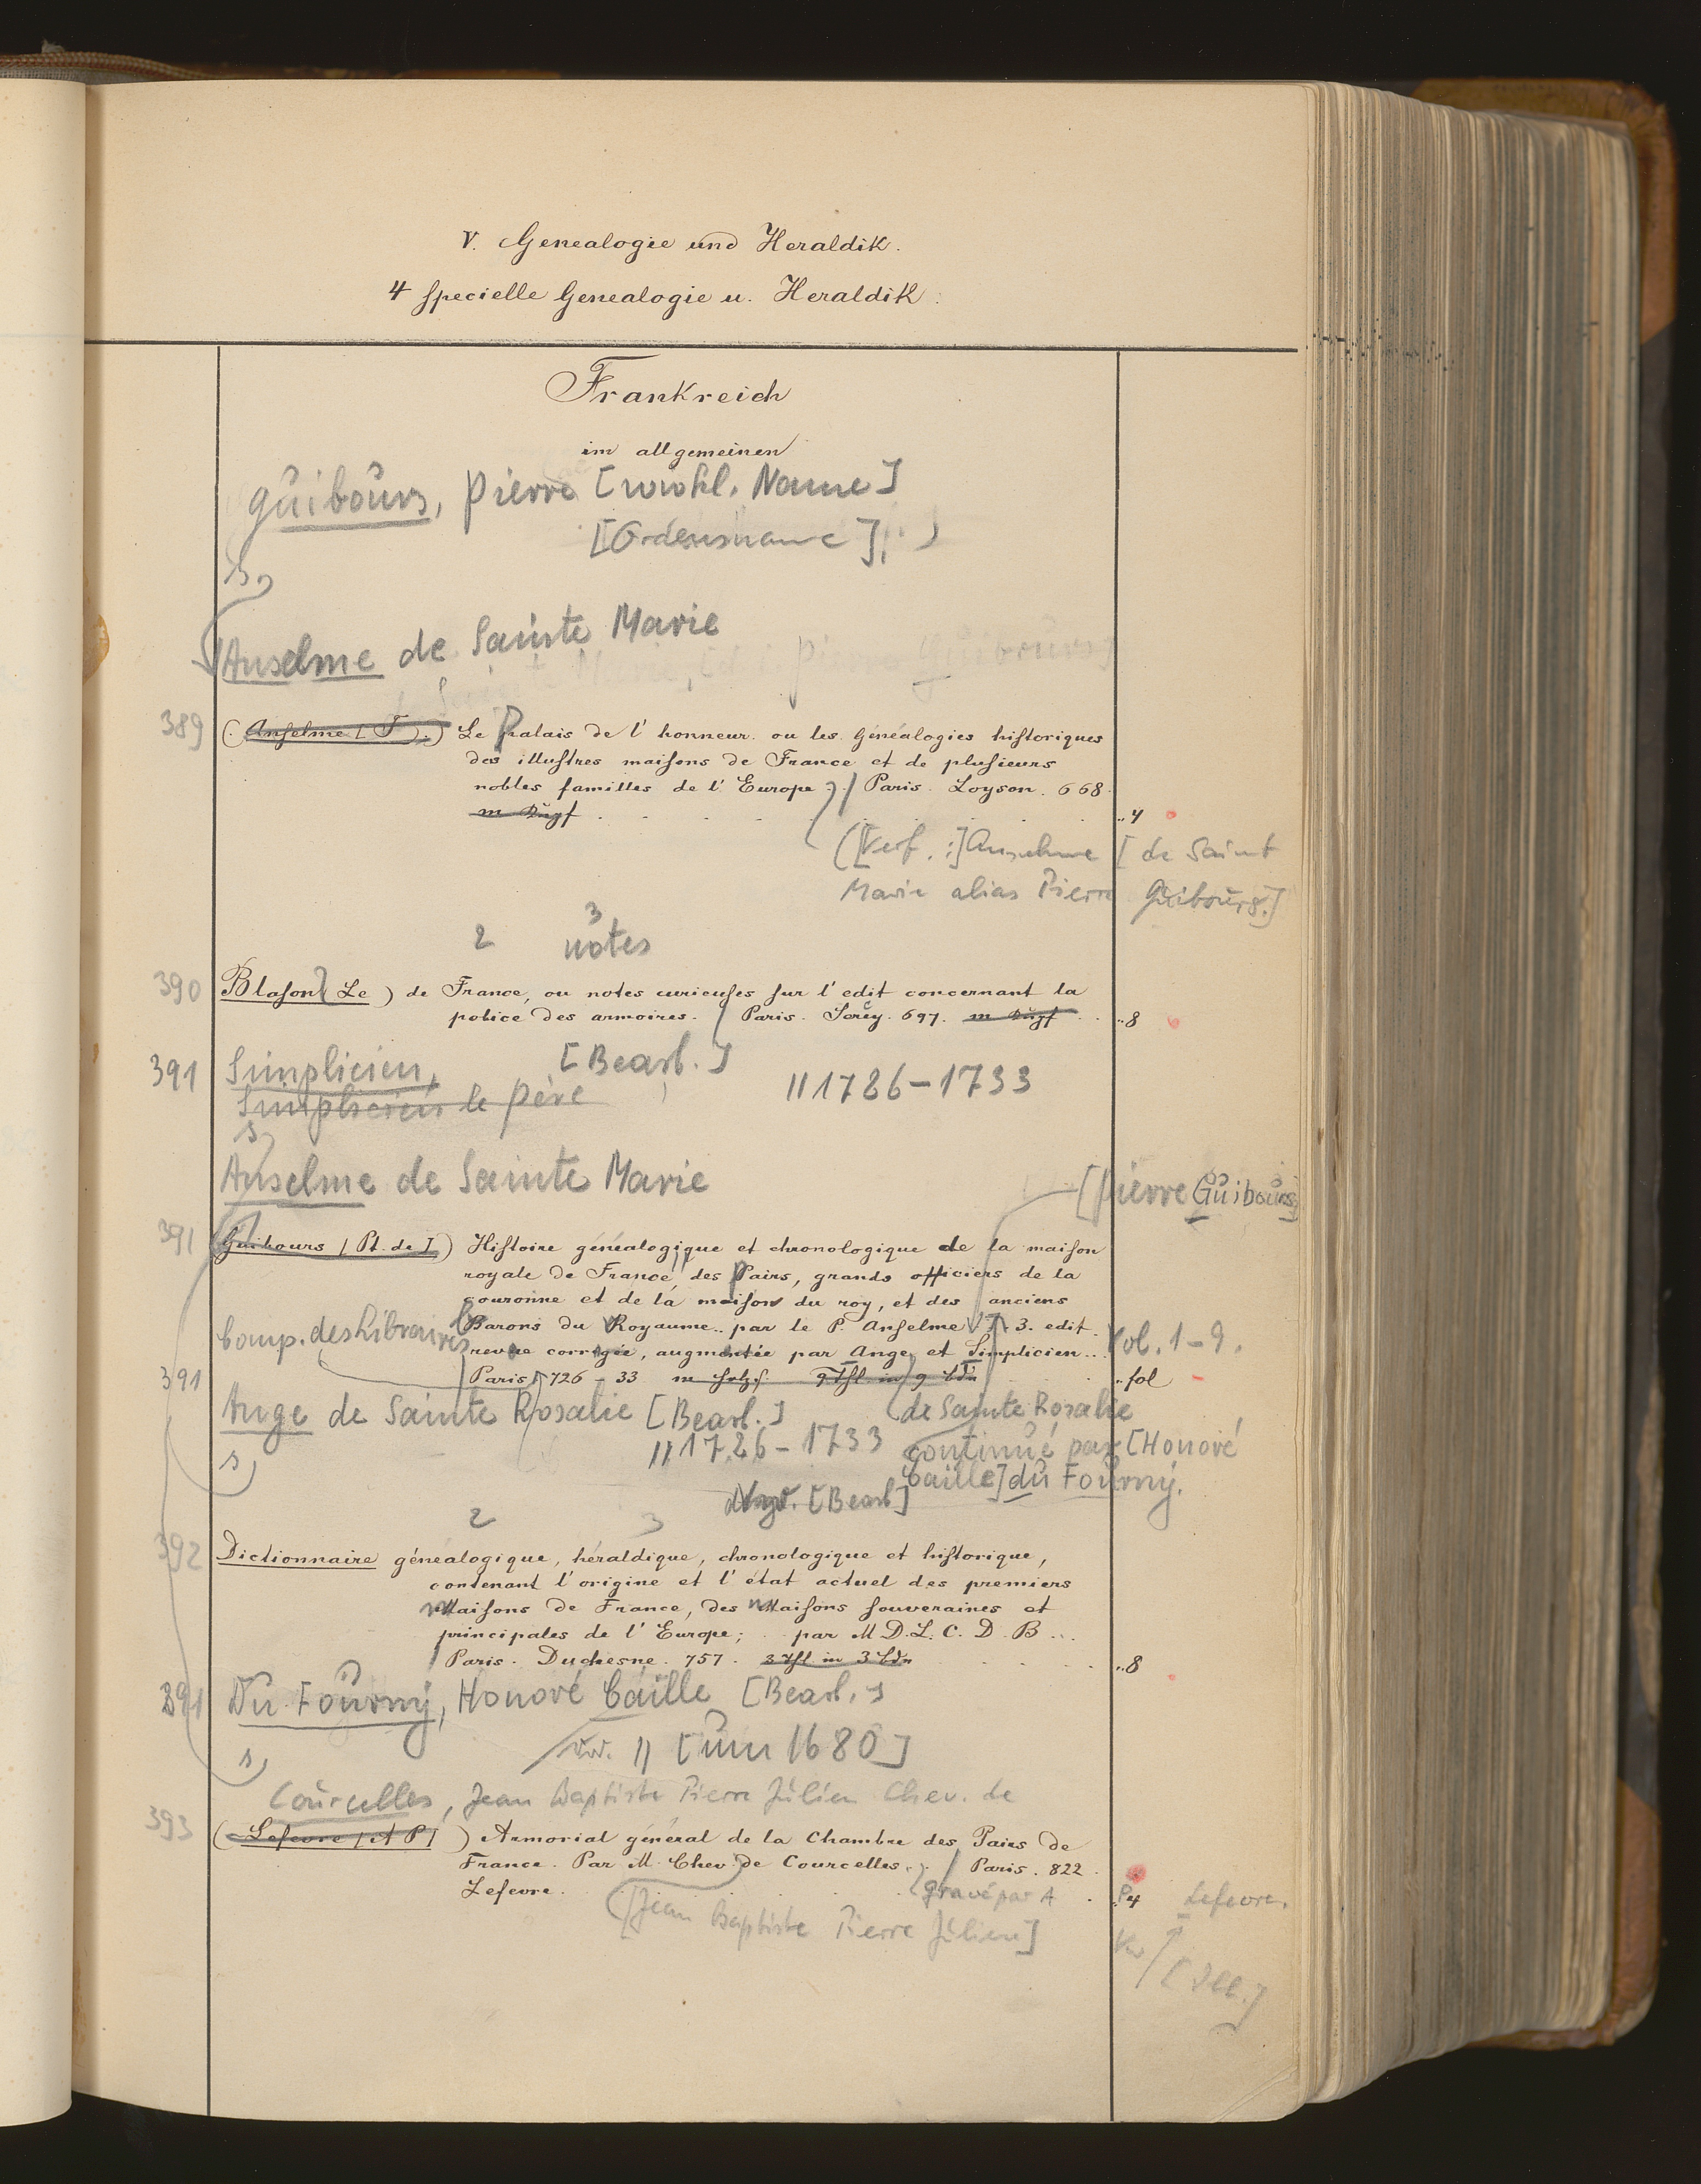 V. Genealogie und Heraldik.
4 specielle Genealogie u. Heraldik.
Frankreich
im allgemeinen
Guibours, Pierre [wirkl. Name]
[Ordensname]
s.
Anselme de Sainte Marie
389 (Anselme [F].) Le Palais de l'honneur ou les Généalogies historiques
des illustres maisons de France et de plusieurs
nobles familles de l'Europe / Paris. Loyson. 668.
"4
([Verf.:] Anselme [de Saint
Marie alias Pierre Guibours.]
2 3
notes
390 Blason (Le) de France, ou notes curieuses sur l'edit concernant la
police des armoires. / Paris. Sercy. 697. "8
391 Simplicien, [Bearb.] // 1726-1733
Simplicien le Père
s.
Anselme de Sainte Marie [Pierre Guibours]
391 (Guibours [Pt. de]) Histoire généalogique et chronologique de la maison
royale de France, des Pairs, grands officiers de la
couronne et de la maison du roy, et des anciens
Barons du Royaume.. par le P. Anselme 3. edit.
Comp. des Libraires revue corrigée, augmentée par Ange et Simplicien... Vol. 1-9.
391 Paris 726-33 "fol
Ange de Sainte Rosalie [Bearb.] de Sainte Rosalie
// 1726-1733 continué par [Honoré
s. Caille] du Fourny.
[Bearb]
2 3
392 Dictionnaire généalogique, héraldique, chronologique et historique,
contenant l'origine et l'état actuel des premiers
maisons de France, des maisons souveraines et
principales de l'Europe; par M D. L. C. D. B...
/ Paris. Duchesne. 757. 3 Thl. in 3 Bdn "8
391 Du Fourny, Honoré Caille [Bearb.]
s. // [um 1680]
Courcelles, Jean Baptiste Pierre Julien Chev. de
393 (Lefevre [A P]) Armorial général de la Chambre des Pairs de
France. Par M. Chev. de Courcelles. / Paris. 822.
Lefevre. gravé par A Lefevre. "4
[Jean Baptiste Pierre Julien]
[Ill.]